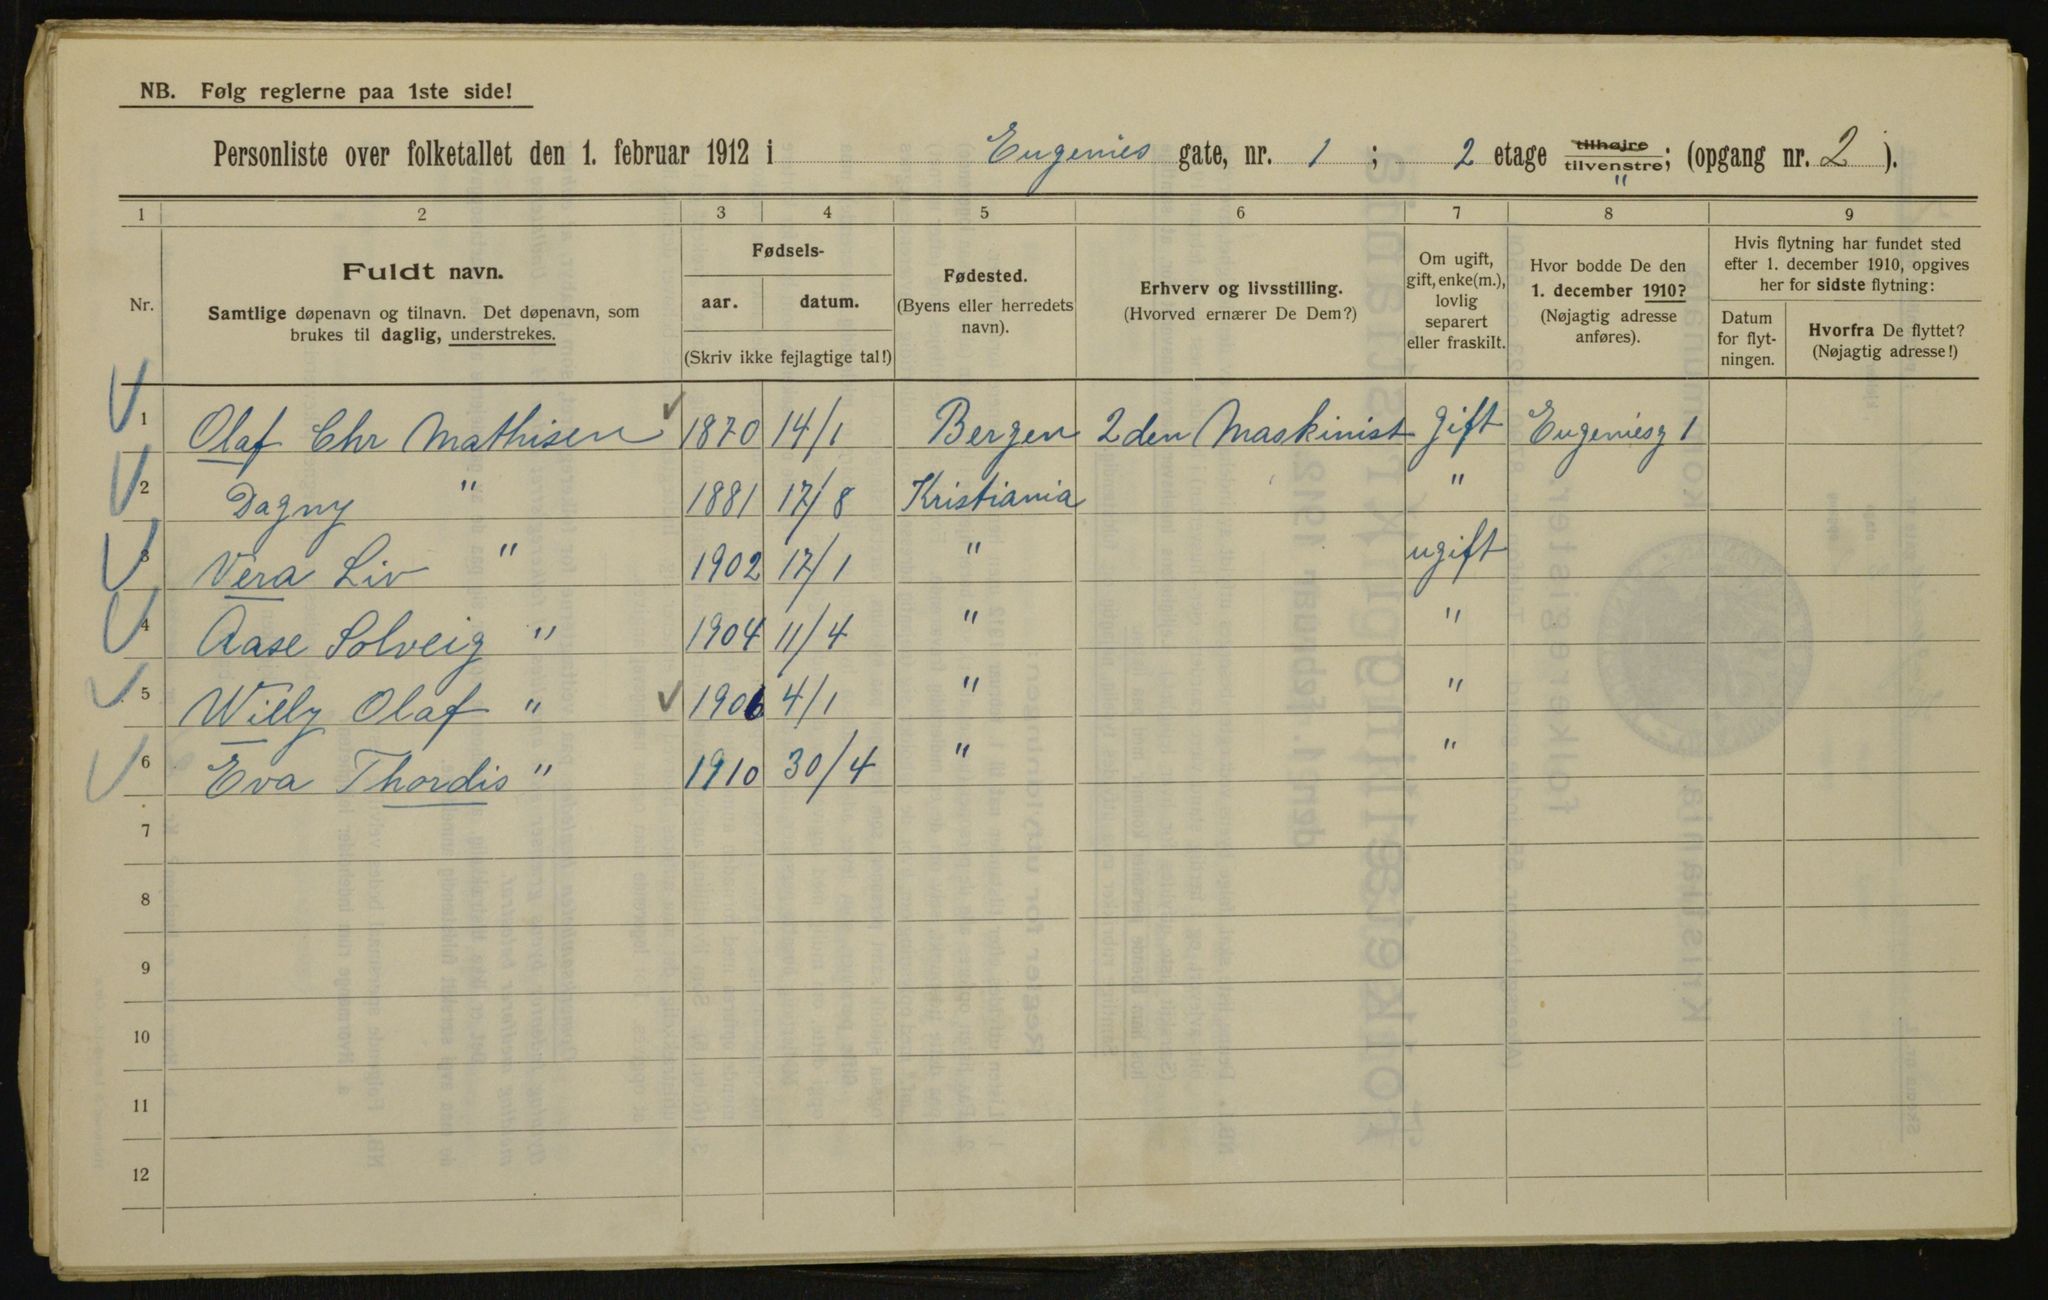 NB. Følg reglerne paa 1ste side!
Personliste over folketallet den 1. februar 1912 i Eugenies gate, nr. 1 ; 2 etage tilhøjre tilvenstre " ; (opgang nr. 2 ).
1 2 3 4 5 6 7 8 9
Nr.
Fuldt navn.
Samtlige døpenavn og tilnavn. Det døpenavn, som
brukes til daglig, understrekes.
Fødsels-
aar. datum.
(Skriv ikke fejlagtige tal!)
Fødested.
(Byens eller herredets
navn).
Erhverv og livsstilling.
(Hvorved ernærer De Dem?)
Om ugift,
gift, enke(m.),
lovlig
separert
eller fraskilt.
Hvor bodde De den
1. december 1910?
(Nøjagtig adresse
anføres).
Hvis flytning har fundet sted
efter 1. december 1910, opgives
her for sidste flytning:
Datum
for flyt-
ningen.
Hvorfra De flyttet?
(Nøjagtig adresse!)
1 Olaf Chr Mathisen 1870 14/1 Bergen 2den Maskinist gift Eugeniesg 1
2 Dagny " 1881 17/8 Kristiania "
3 Vera Liv " 1902 17/1 " ugift
4 Aase Solveig " 1904 11/4 " "
5 Willy Olaf " 1906 4/1 " "
6 Eva Thordis " 1910 30/4 " "
7
8
9
10
11
12